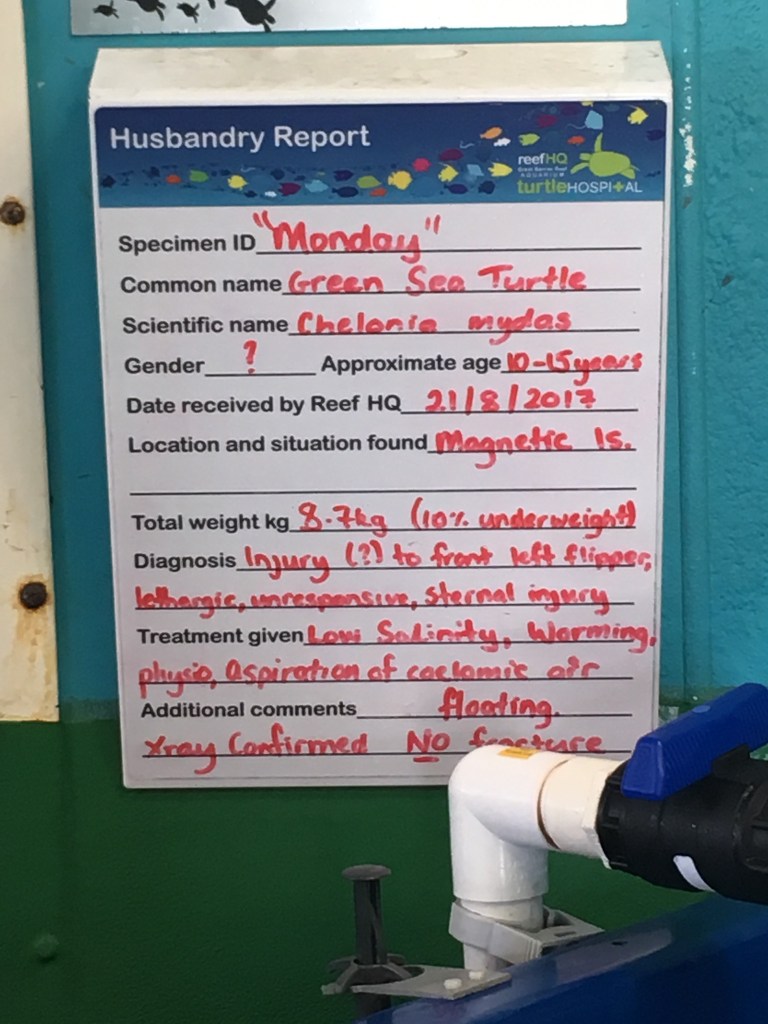 Husbandry Report
reefHQ
Great Barrier Reef
AQUARIUM
turtleHOSPITAL
Specimen ID "Monday"
Common name Green Sea Turtle
Scientific name Chelonia mydas
Gender ? Approximate age 10-15years
Date received by Reef HQ 21/8/2017
Location and situation found Magnetic Is.
Total weight kg 8.7kg (10% underweight)
Diagnosis Injury (?) to front left flipper,
lethargic, unresponsive, sternal injury
Treatment given Low Salinity, Warming,
physio, Aspiration of coelomic air
Additional comments floating.
Xray Confirmed NO fracture